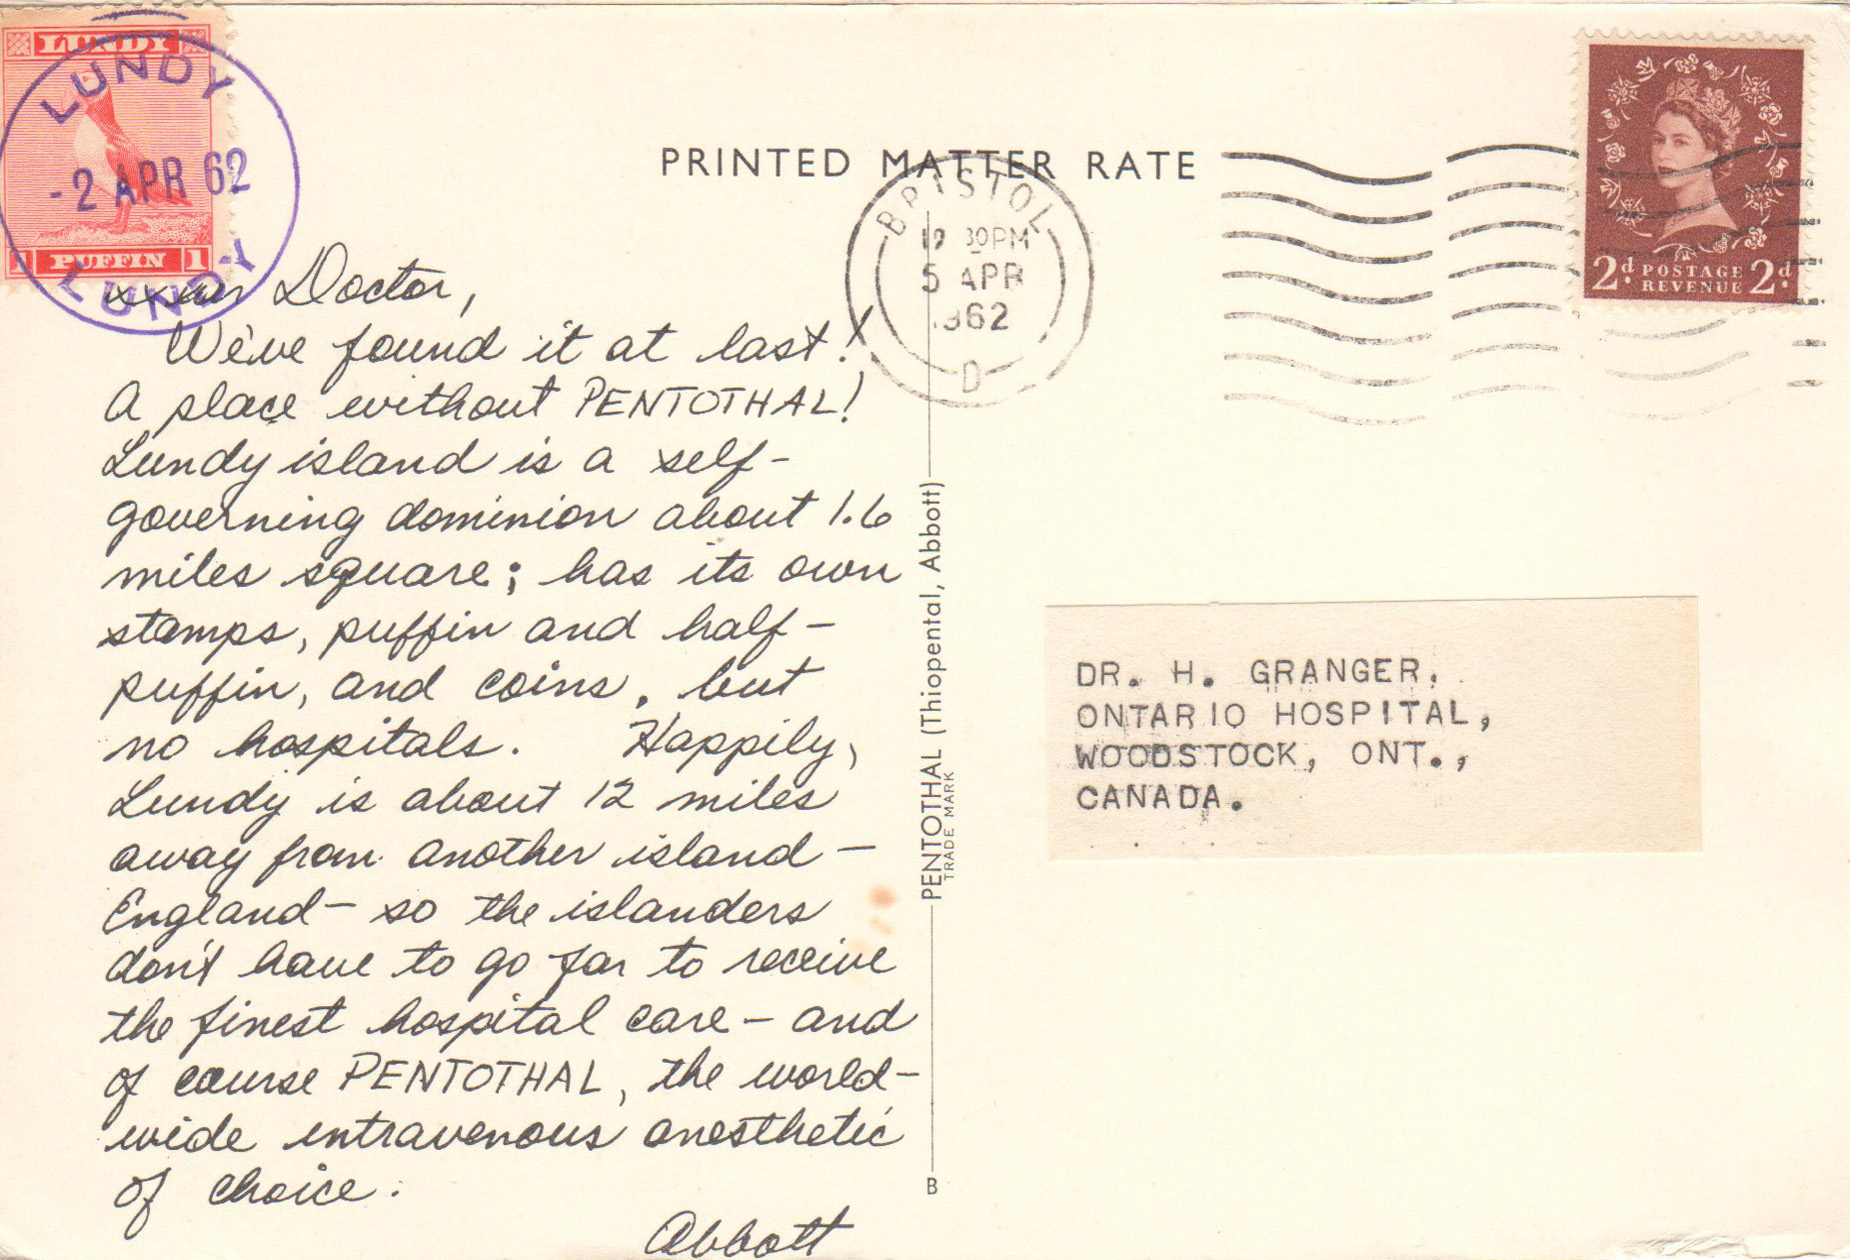 LUNDY
LUNDY
-2 APR 62
1 PUFFIN 1
LUNDY
PRINTED MATTER RATE
BRISTOL
12 30PM
5 APR
1962
D
2d. POSTAGE 2d.
REVENUE
Doctor,
We've found it at last!
A place without PENTOTHAL!
Lundy island is a self-
governing dominion about 1.6
miles square; has its own
stamps, puffin and half-
puffin, and coins, but
no hospitals. Happily,
Lundy is about 12 miles
away from another island -
England - so the islanders
don't have to go far to receive
the finest hospital care - and
of course PENTOTHAL, the world-
wide intravenous anesthetic
of choice.
Abbott
PENTOTHAL (Thiopental, Abbott)
TRADE MARK
B
DR. H. GRANGER,
ONTARIO HOSPITAL,
WOODSTOCK, ONT.,
CANADA.